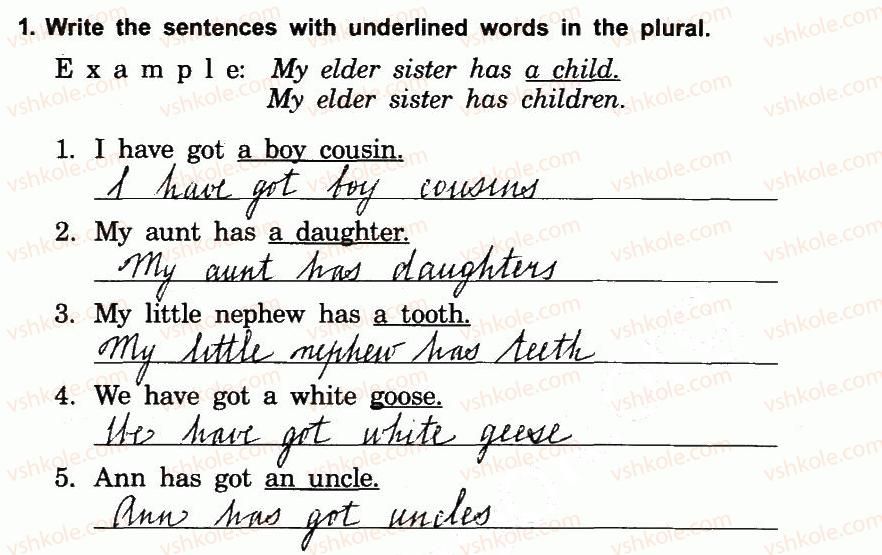 1. Write the sentences with underlined words in the plural.
Example: My elder sister has a child.
My elder sister has children.
1. I have got a boy cousin.
I have got boy cousins
2. My aunt has a daughter.
My aunt has daughters
3. My little nephew has a tooth.
My little nephew has teeth
4. We have got a white goose.
We have got white geese
5. Ann has got an uncle.
Ann has got uncles
vshkole.com